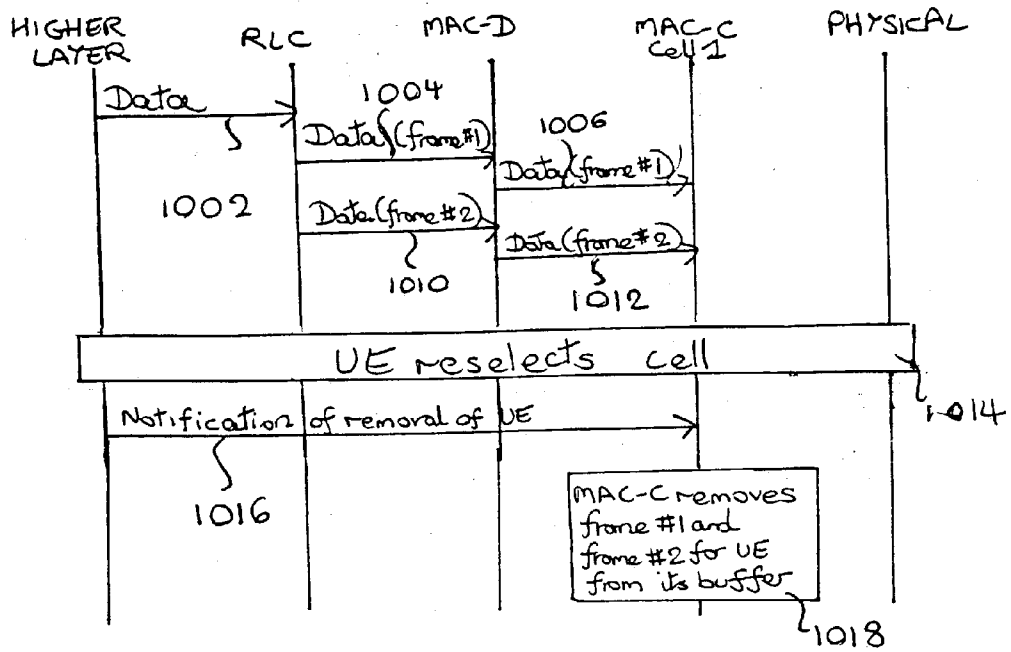 HIGHER
LAYER
RLC
MAC-D
MAC-C
Cell 1
PHYSICAL
Data
1004
Data (frame #1)
1006
Data (frame #1)
1002
Data (frame #2)
Data (frame #2)
1010
1012
UE reselects cell
1014
Notification of removal of UE
1016
MAC-C removes
frame #1 and
frame #2 for UE
from its buffer
1018